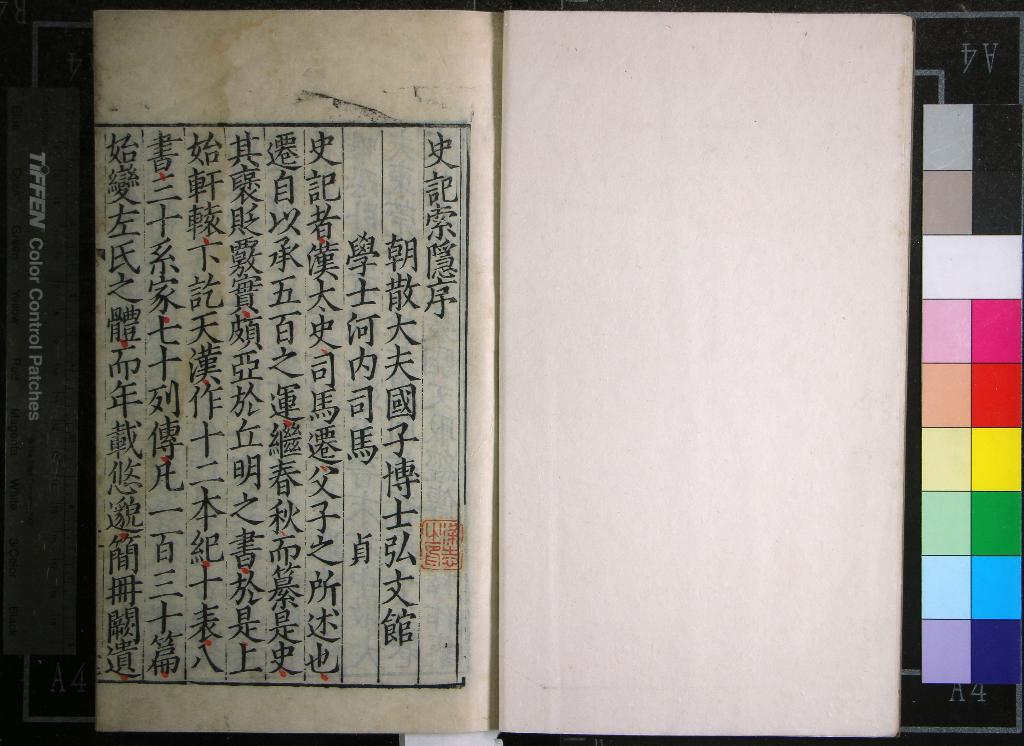 史記索隱序
朝散大夫國子博士弘文館
學士河内司馬　貞
史記者漢太史司馬遷父子之所述也
遷自以承五百之運繼春秋而纂是史
其襃貶覈實頗亞於丘明之書於是上
始軒轅下訖天漢作十二本紀十表八
書三十系家七十列傳凡一百三十篇
始變左氏之體而年載悠邈簡冊闕遺
TIFFEN Color Control Patches
A4
A4
A4